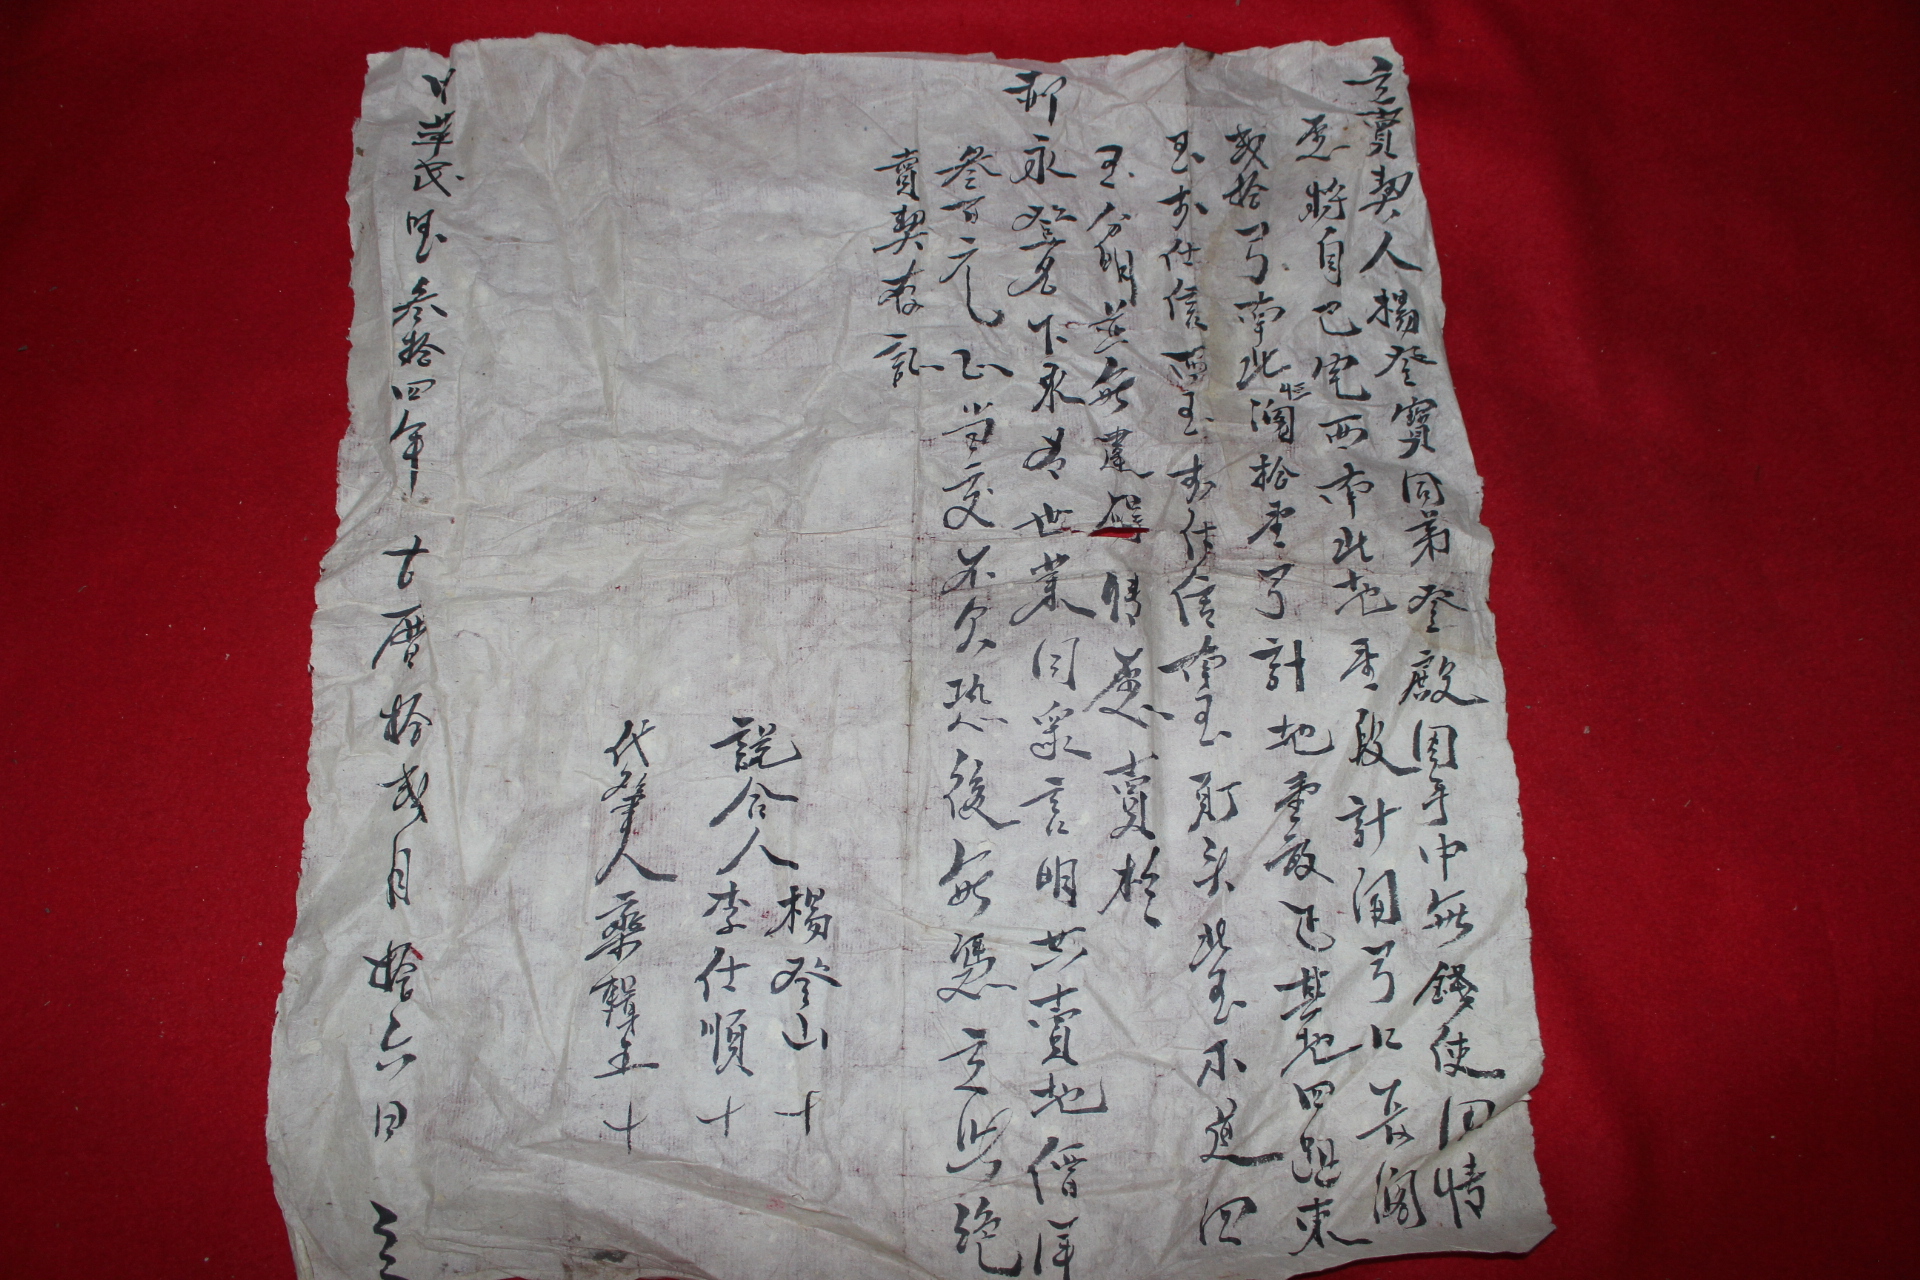 立賣契人楊登寶同弟登殿因手中無錢使用情
愿將自己宅西南北地壹段計開弓口長闊
貳拾弓南北闊拾壹弓計地壹畝正其地四趾東
至李仕信西至李仕信南至 北至 四
至分明並無違碍情愿賣於
郝永登名下永為世業同眾言明共賣地價洋
叁百元正當交不欠恐後無憑立此絕
賣契存証
說合人 楊登山 十
李仕順 十
代筆人
中華民國叁拾四年 古曆拾貳月拾六日 立